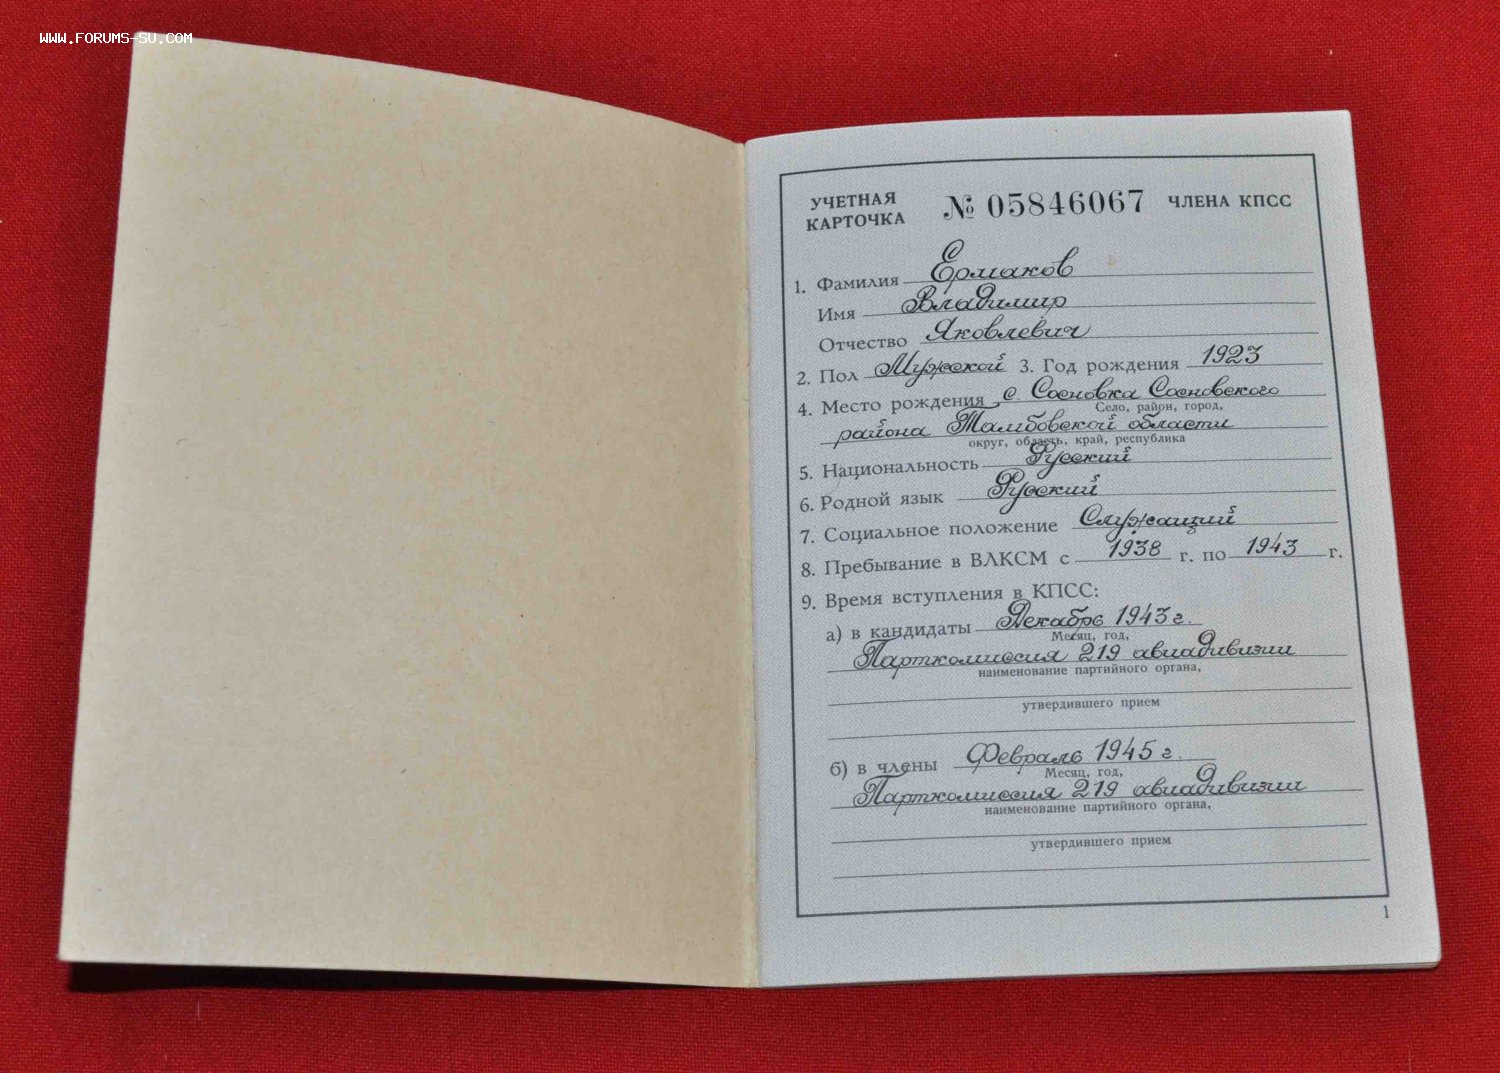 WWW.FORUMS-SU.COM
УЧЕТНАЯ КАРТОЧКА № 05846067 ЧЛЕНА КПСС
1. Фамилия Ермаков
Имя Владимир
Отчество Яковлевич
2. Пол Мужской 3. Год рождения 1923
4. Место рождения с. Сосновка Сосновского
Село, район, город,
района Тамбовской области
округ, область, край, республика
5. Национальность Русский
6. Родной язык Русский
7. Социальное положение Служащий
8. Пребывание в ВЛКСМ с 1938 г. по 1943 г.
9. Время вступления в КПСС:
а) в кандидаты Декабрь 1943 г.
Месяц, год,
Парткомиссия 219 авиадивизии
наименование партийного органа,
утвердившего прием
б) в члены Февраль 1945 г.
Месяц, год,
Парткомиссия 219 авиадивизии
наименование партийного органа,
утвердившего прием
1